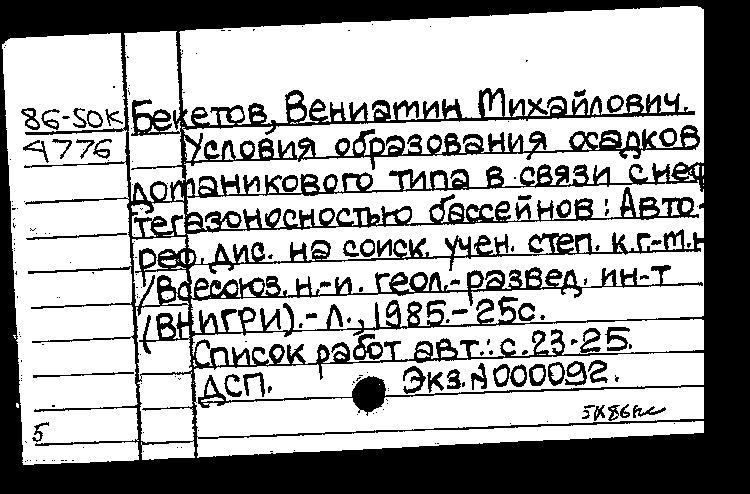 86-50к Бекетов, Вениамин Михайлович.
4776 Условия образования осадков
доманикового типа в связи с неф
тегазоносностью бассейнов: Авто-
реф. дис. на соиск. учен. степ. к.г.-м.н
/Всесоюз. н.-и. геол.-развед. ин-т
(ВНИГРИ).-Л., 1985.-25с.
Список работ авт.: с.23-25.
ДСП. Экз.N000092.
5